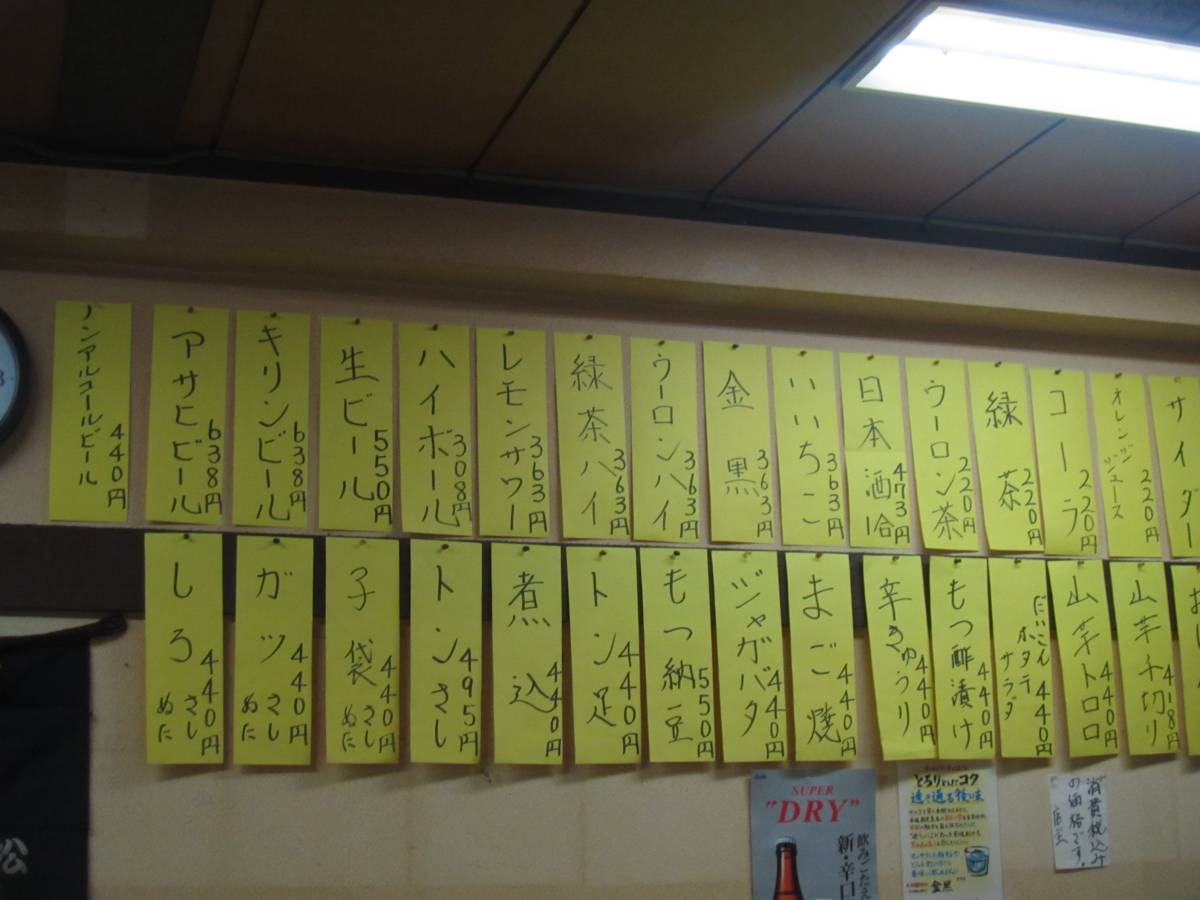 ノンアルコールビール 440円
アサヒビール 638円
キリンビール 638円
生ビール 550円
ハイボール 308円
レモンサワー 363円
緑茶ハイ 363円
ウーロンハイ 363円
金黒 363円
いいちこ 363円
日本酒1合 473円
ウーロン茶 220円
緑茶 220円
コーラ 220円
オレンジジュース 220円
サイダー
しろ さし ぬた 440円
ガツ さし ぬた 440円
子袋 さし ぬた 440円
トンさし 495円
煮込 440円
トン足 440円
もつ納豆 550円
ジャガバタ 440円
まご焼 440円
辛きゅうり 440円
もつ酢漬け 440円
だいこんホタテサラダ 440円
山芋トロロ 440円
山芋千切り 418円
SUPER
"DRY"
飲みごたえ
新・辛口
とろりとしたコク
透き通る後味
金黒
消費税込み
の価格です。
店主